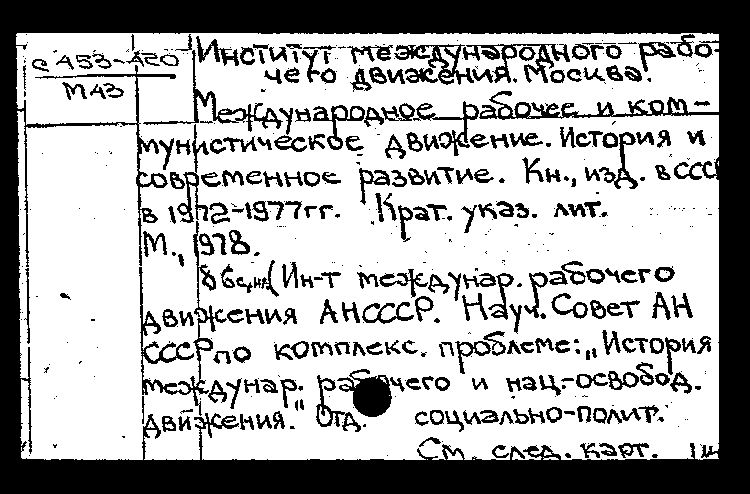 с 453-420
М43
Институт международного рабо-
чего движения. Москва.
Международное рабочее и ком-
мунистическое движение. История и
современное развитие. Кн., изд. в СССР
в 1972-1977гг. Крат. указ. лит.
М., 1978.
(Ин-т междунар. рабочего
движения АНСССР. Науч. Совет АН
СССР по комплекс. проблеме: „История
междунар. рабочего и нац-освобод.
движения." Отд. социально-полит.
См. след. карт.